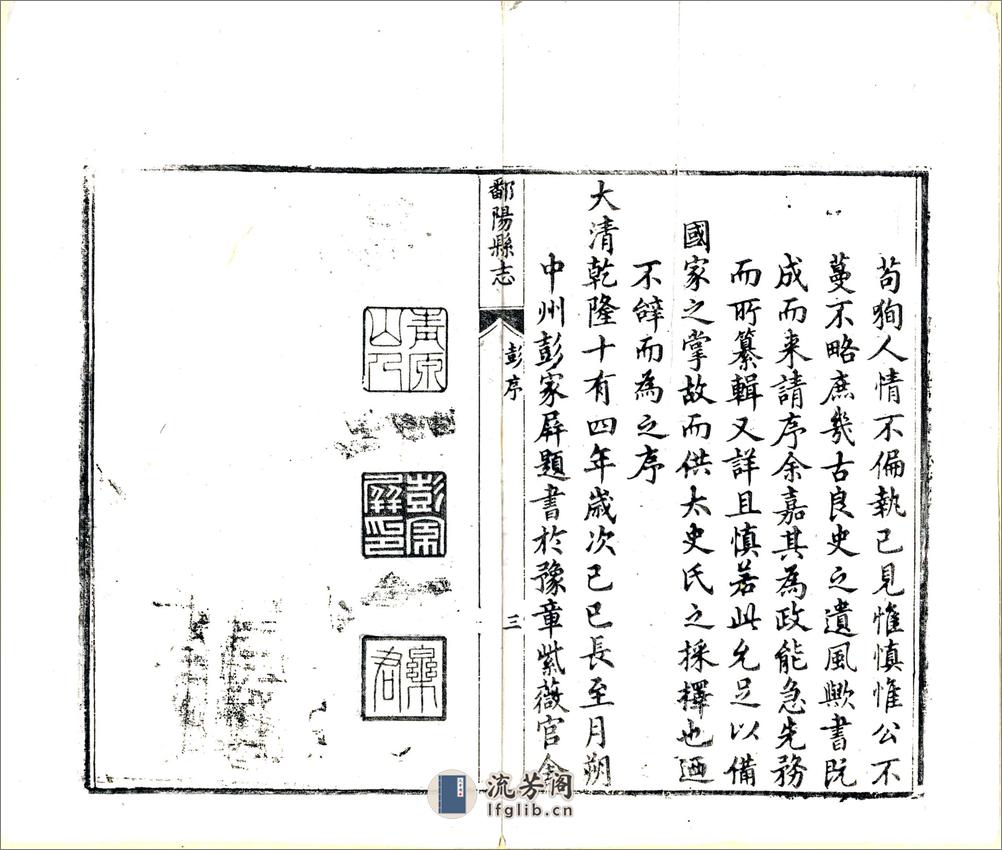 苟狥人情不偏執已見惟慎惟公不
蔓不略庶幾古良史之遺風歟書既
成而来請序余嘉其為政能急先務
而所纂輯又詳且慎若此允足以備
國家之掌故而供太史氏之採擇也迺
不辭而為之序
大清乾隆十有四年歲次己巳長至月朔
中州彭家屏題書於豫章紫薇官
鄱陽縣志
彭序
三
青原山人
彭家屏印
樂君
流芳阁
lfglib.cn